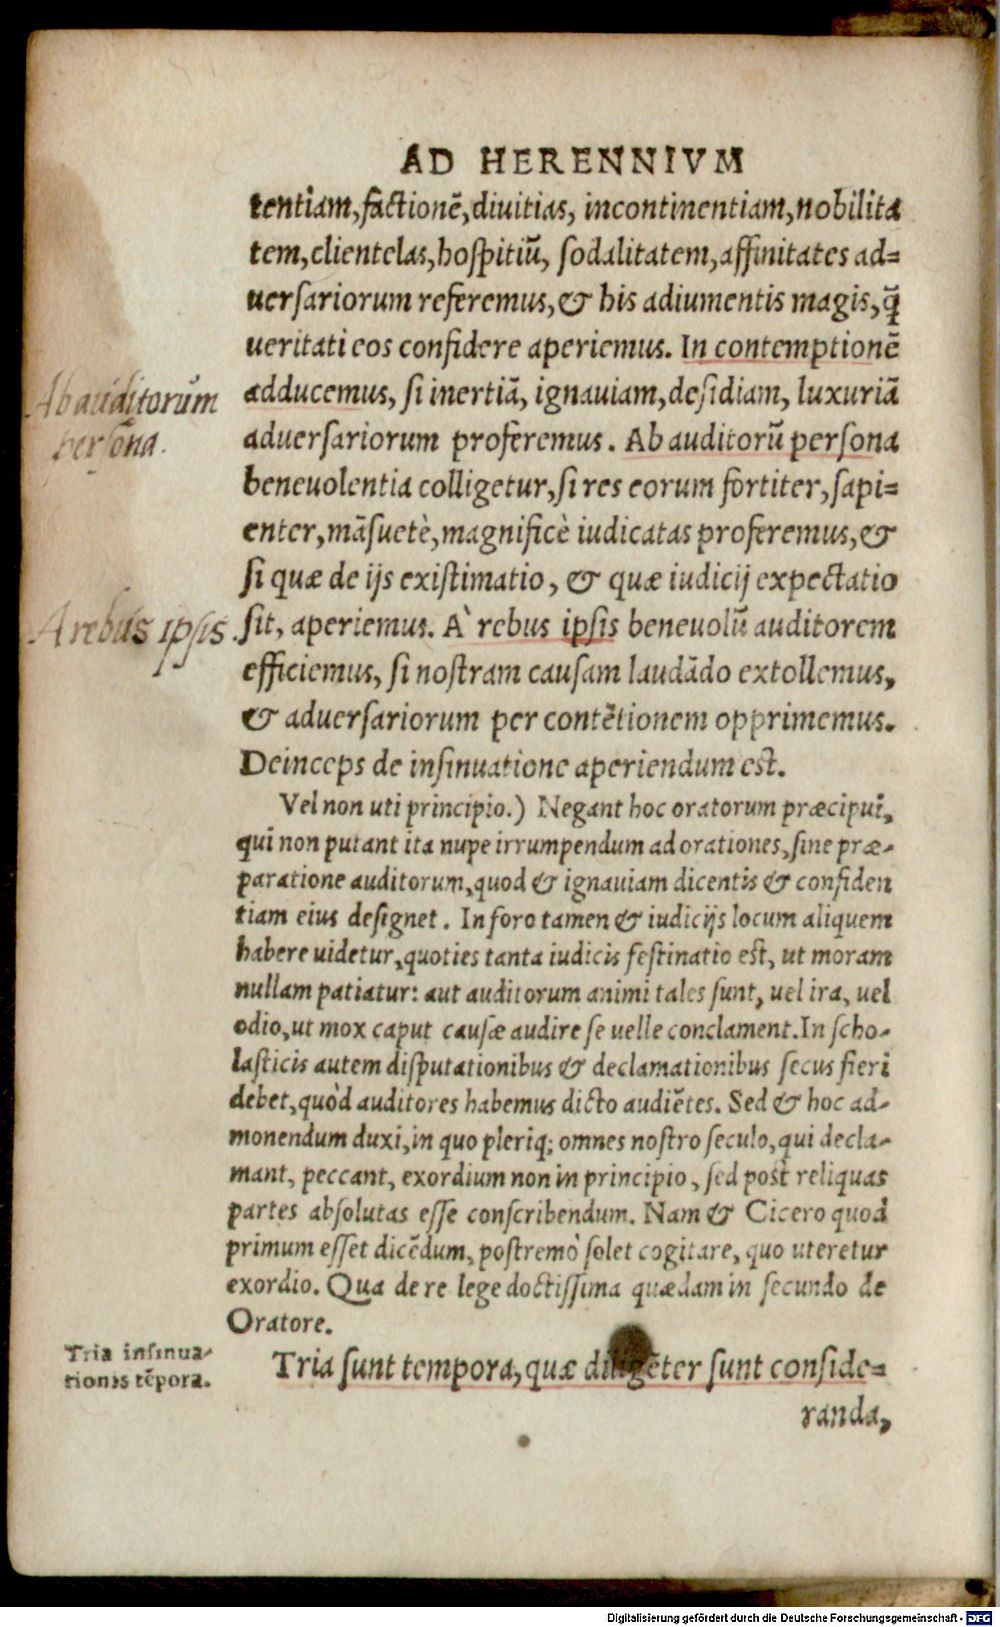 AD HERENNIVM
tentiam, factionē, diuitias, incontinentiam, nobilita
tem, clientelas, hospitiū, sodalitatem, affinitates ad=
uersariorum referemus, & his adiumentis magis, q̄
ueritati eos confidere aperiemus. In contemptionē
adducemus, si inertiā, ignauiam, desidiam, luxuriā
aduersariorum proferemus. Ab auditorū persona
beneuolentia colligetur, si res eorum fortiter, sapi=
enter, māsuetè, magnificè iudicatas proferemus, &
si quæ de ijs existimatio, & quæ iudicij expectatio
sit, aperiemus. À rebus ipsis beneuolū auditorem
efficiemus, si nostram causam laudādo extollemus,
& aduersariorum per contētionem opprimemus.
Deinceps de insinuatione aperiendum est.
Ab auditorum
persona.
A rebus ipsis.
Vel non uti principio.) Negant hoc oratorum præcipui,
qui non putant ita nupe irrumpendum ad orationes, sine præ-
paratione auditorum, quod & ignauiam dicentis & confiden
tiam eius designet. In foro tamen & iudicijs locum aliquem
habere uidetur, quoties tanta iudicis festinatio est, ut moram
nullam patiatur: aut auditorum animi tales sunt, uel ira, uel
odio, ut mox caput causæ audire se uelle conclament. In scho-
lasticis autem disputationibus & declamationibus secus fieri
debet, quòd auditores habemus dicto audiētes. Sed & hoc ad-
monendum duxi, in quo pleriq; omnes nostro seculo, qui decla-
mant, peccant, exordium non in principio, sed post reliquas
partes absolutas esse conscribendum. Nam & Cicero quod
primum esset dicēdum, postremò solet cogitare, quo uteretur
exordio. Qua de re lege doctissima quædam in secundo de
Oratore.
Tria insinua-
tionis tēpora.
Tria sunt tempora, quæ diligēter sunt conside=
randa,
Digitalisierung gefördert durch die Deutsche Forschungsgemeinschaft - DFG